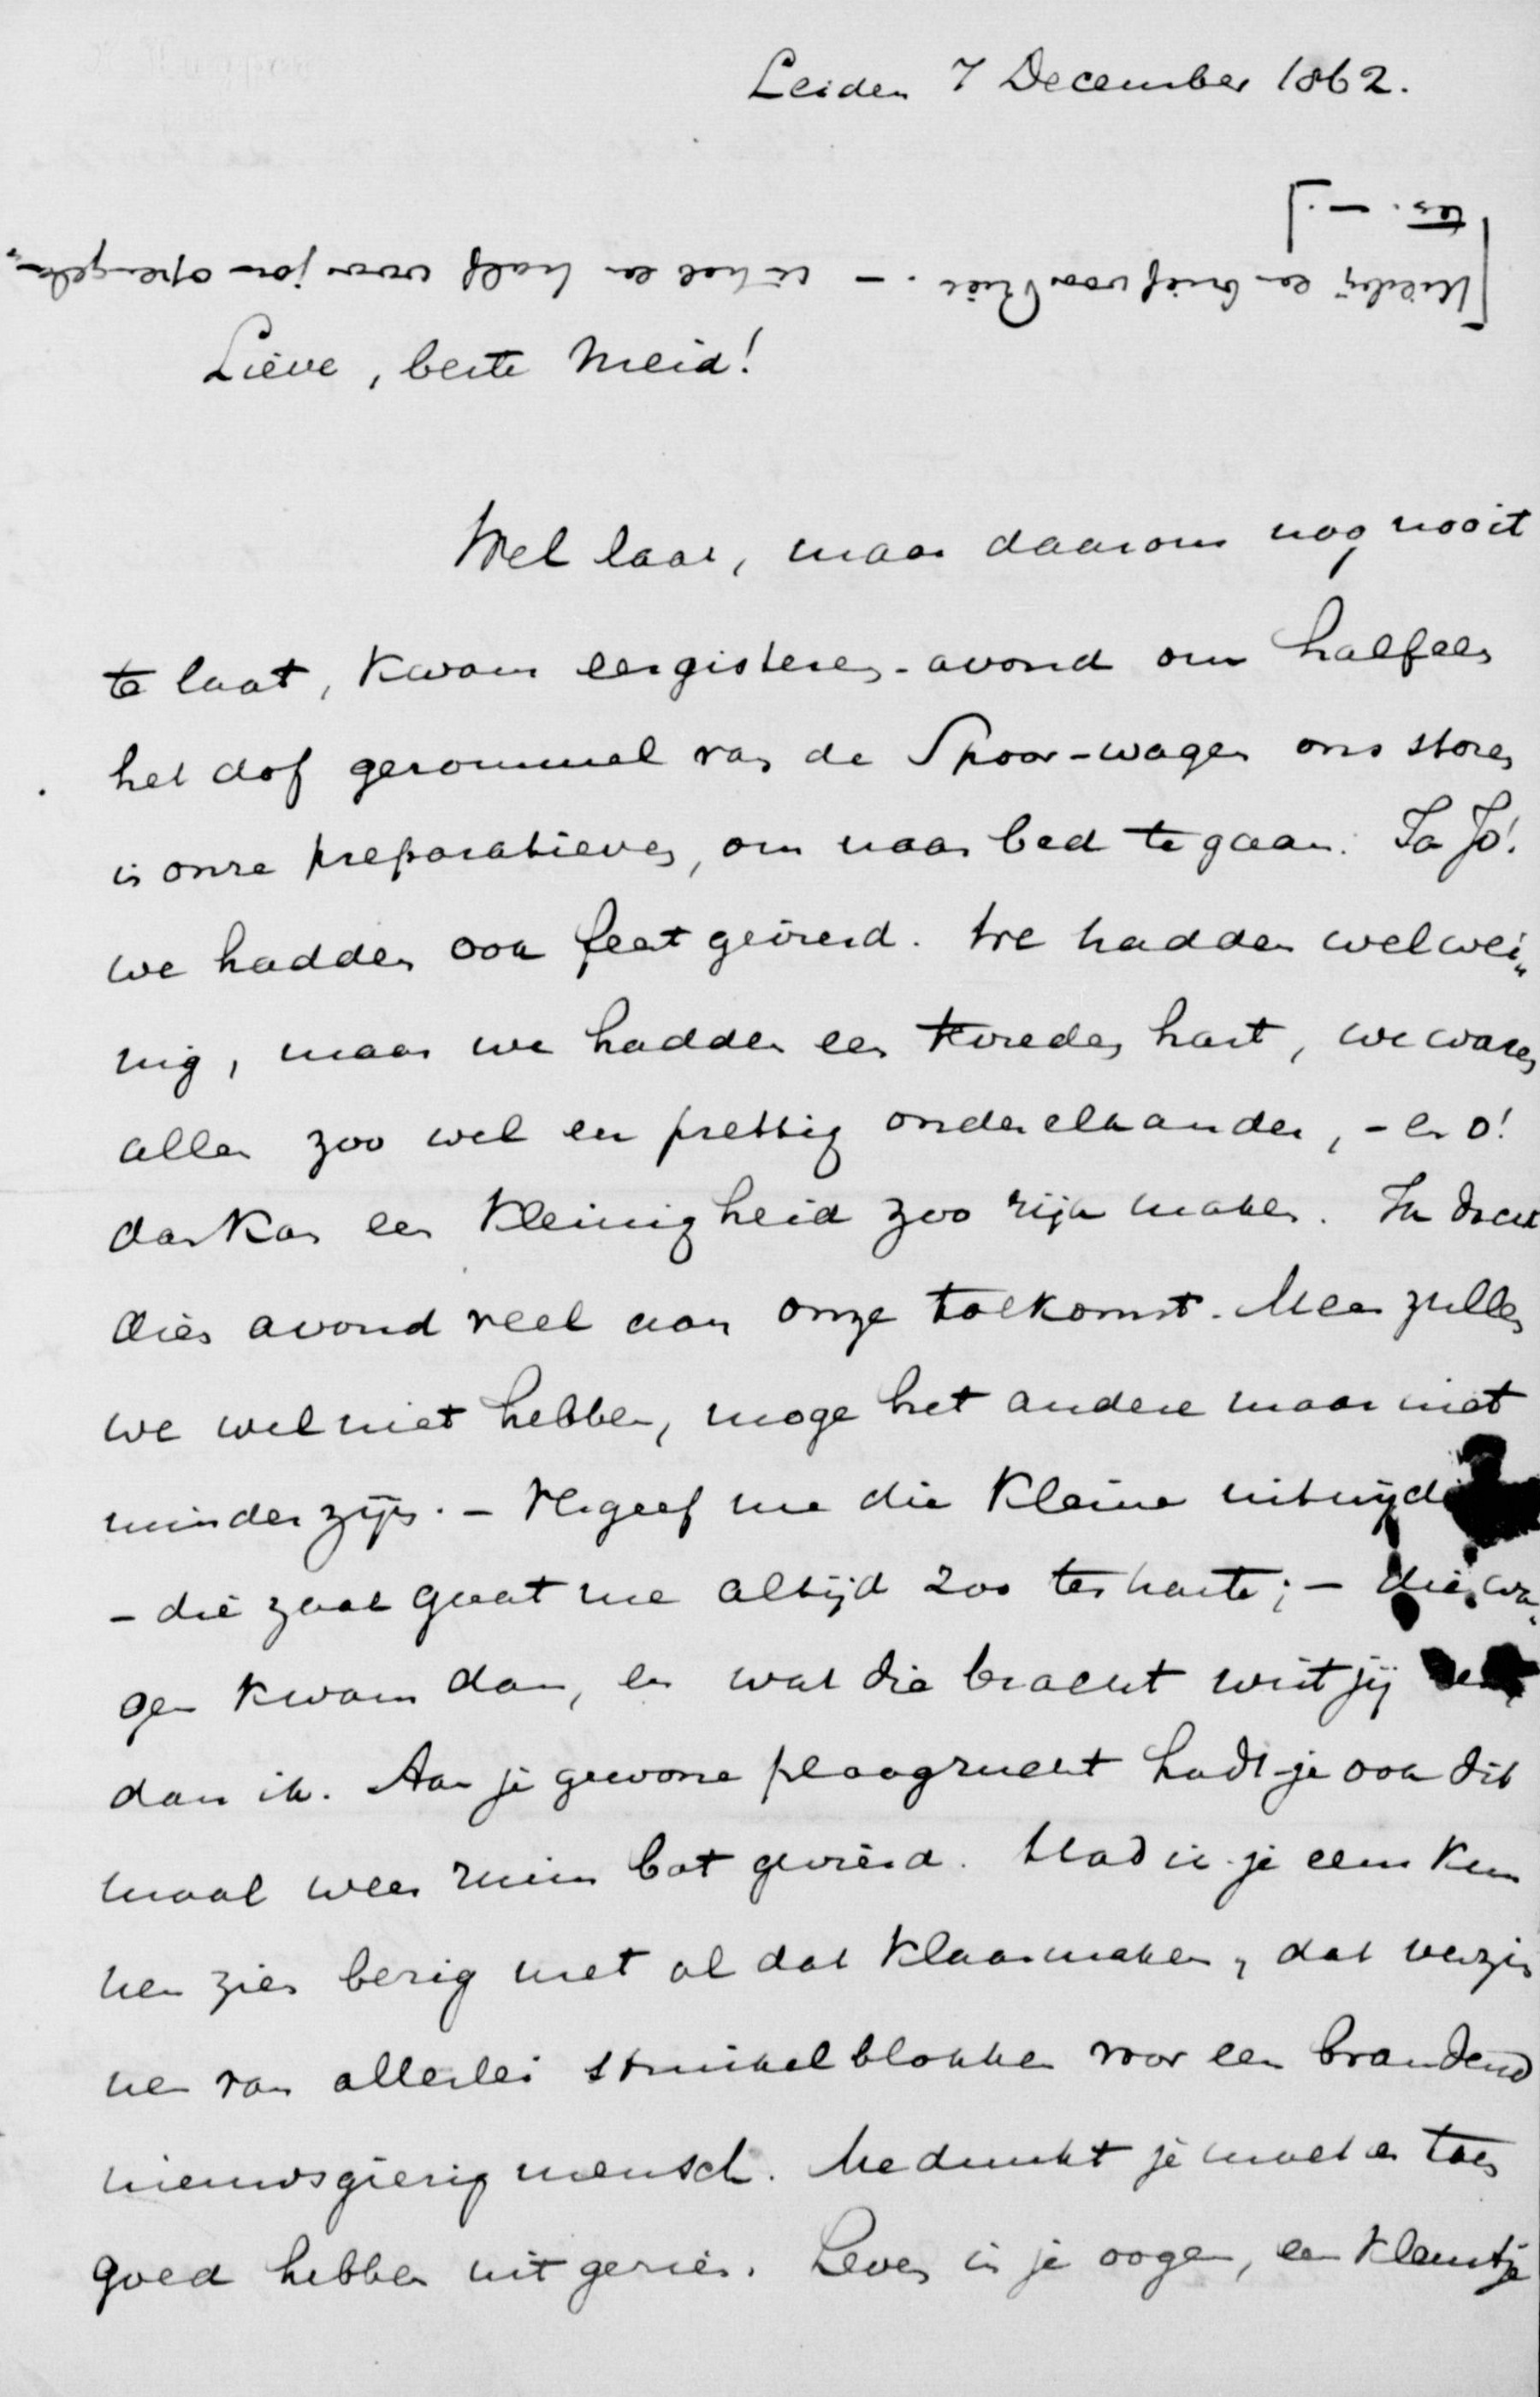 Leiden 7 December 1862.
[Hierbij een brief voor Riek. – ik heb er half voor jou opengela„
ten. –]
Lieve, beste Meid!
Wel laat, maar daarom nog nooit
te laat, kwam eergisteren-avond om half een
het dof gerommel van de Spoor-wagen ons storen
in onze preparatieven, om naar bed te gaan. Ja Jo!
we hadden ook feest gevierd. We hadden wel wei„
nig, maar we hadden een tevreden hart, we waren
allen zoo wel en prettig onder elkander, – en o!
dan kan een kleinigheid zoo rijk maken. Ik dacht
dien avond veel aan onze toekomst. Meer zullen
we wel niet hebben, moge het andere maar niet
minder zijn. – Vergeef me die kleine uitwijdi
– die zaak gaat me altijd zoo ter harte; – die wa„
gen kwam dan, en wat die bracht wist jij
dan ik. Aan je gewone plaagzucht hadt-je ook dit
maal weer ruim bot gevierd. Had ik je eens kun
nen zien bezig met al dat klaarmaken, dat verzin
nen van allerlei struikelblokken voor een brandend
nieuwsgierig mensch. Me dunkt je moet er toen
goed hebben uitgezien. Leven in je oogen, een kleurtje